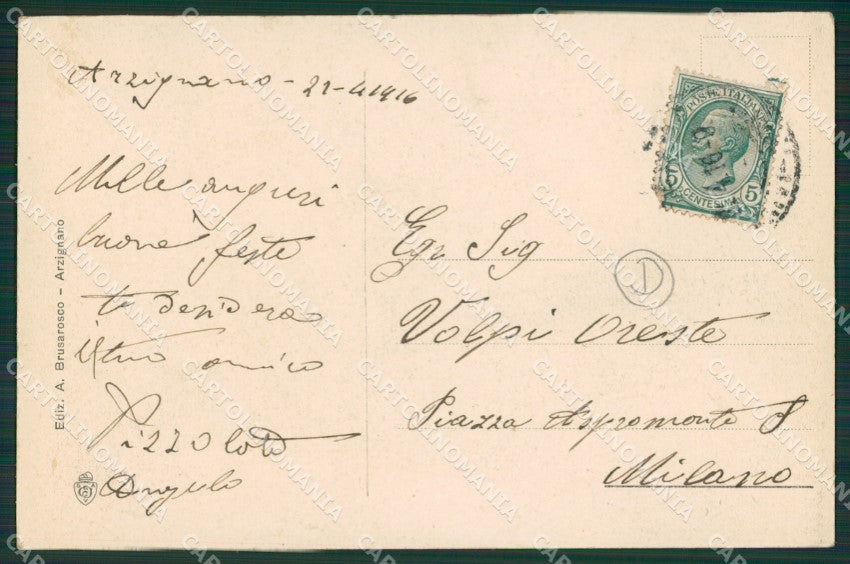 Arzignano - 21-4 1916
Mille auguri
buone feste
te desidera
il tuo amico
Pizzolato
Angelo
Ediz. A. Brusarosco - Arzignano
POSTE ITALIANE
5 CENTESIMI 5
Egr Sig
Volpi Oreste
Piazza Aspromonte 8
Milano
CARTOLINOMANIA